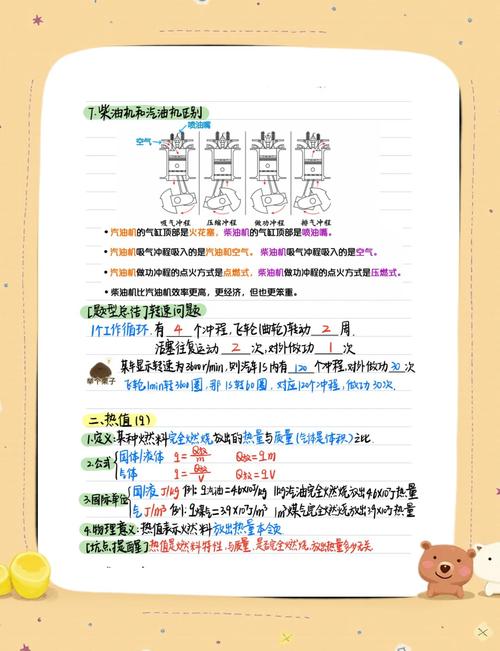 7.柴油机和汽油机区别
喷油嘴
空气
吸气冲程 压缩冲程 做功冲程 排气冲程
• 汽油机的气缸顶部是火花塞，柴油机的气缸顶部是喷油嘴。
• 汽油机吸气冲程吸入的是汽油和空气。柴油机吸气冲程吸入的是空气。
• 汽油机做功冲程的点火方式是点燃式，柴油机做功冲程的点火方式是压燃式。
• 柴油机比汽油机效率更高，更经济，但也更笨重。
[题型总结]转速问题
1个工作循环，有 4 个冲程，飞轮(曲轴)转动 2 周
活塞往复运动 2 次，对外做功 1 次
举个栗子
某车显示转速为3600r/min，则汽车1s内有 120 个冲程，对外做功 30 次
飞轮1min转3600圈，那1s转60圈，对应120个冲程，做功30次.
二、热值(q)
1.定义：某种燃料完全燃烧放出的热量与质量(气体是体积)之比.
2.公式 固体/液体 q=Q放/m Q放=qm
气体 q=Q放/V Q放=qV
3.国际单位 固/液 J/kg 例：q汽油=4.6×10⁷J/kg 1kg汽油完全燃烧放出4.6×10⁷J热量
气 J/m³ 例：q煤气=3.9×10⁷J/m³ 1m³煤气完全燃烧放出3.9×10⁷J热量
4.物理意义：热值表示燃料放出热量本领
[坑点提醒]热值是燃料特性，与质量、是否完全燃烧、放出热量多少无关